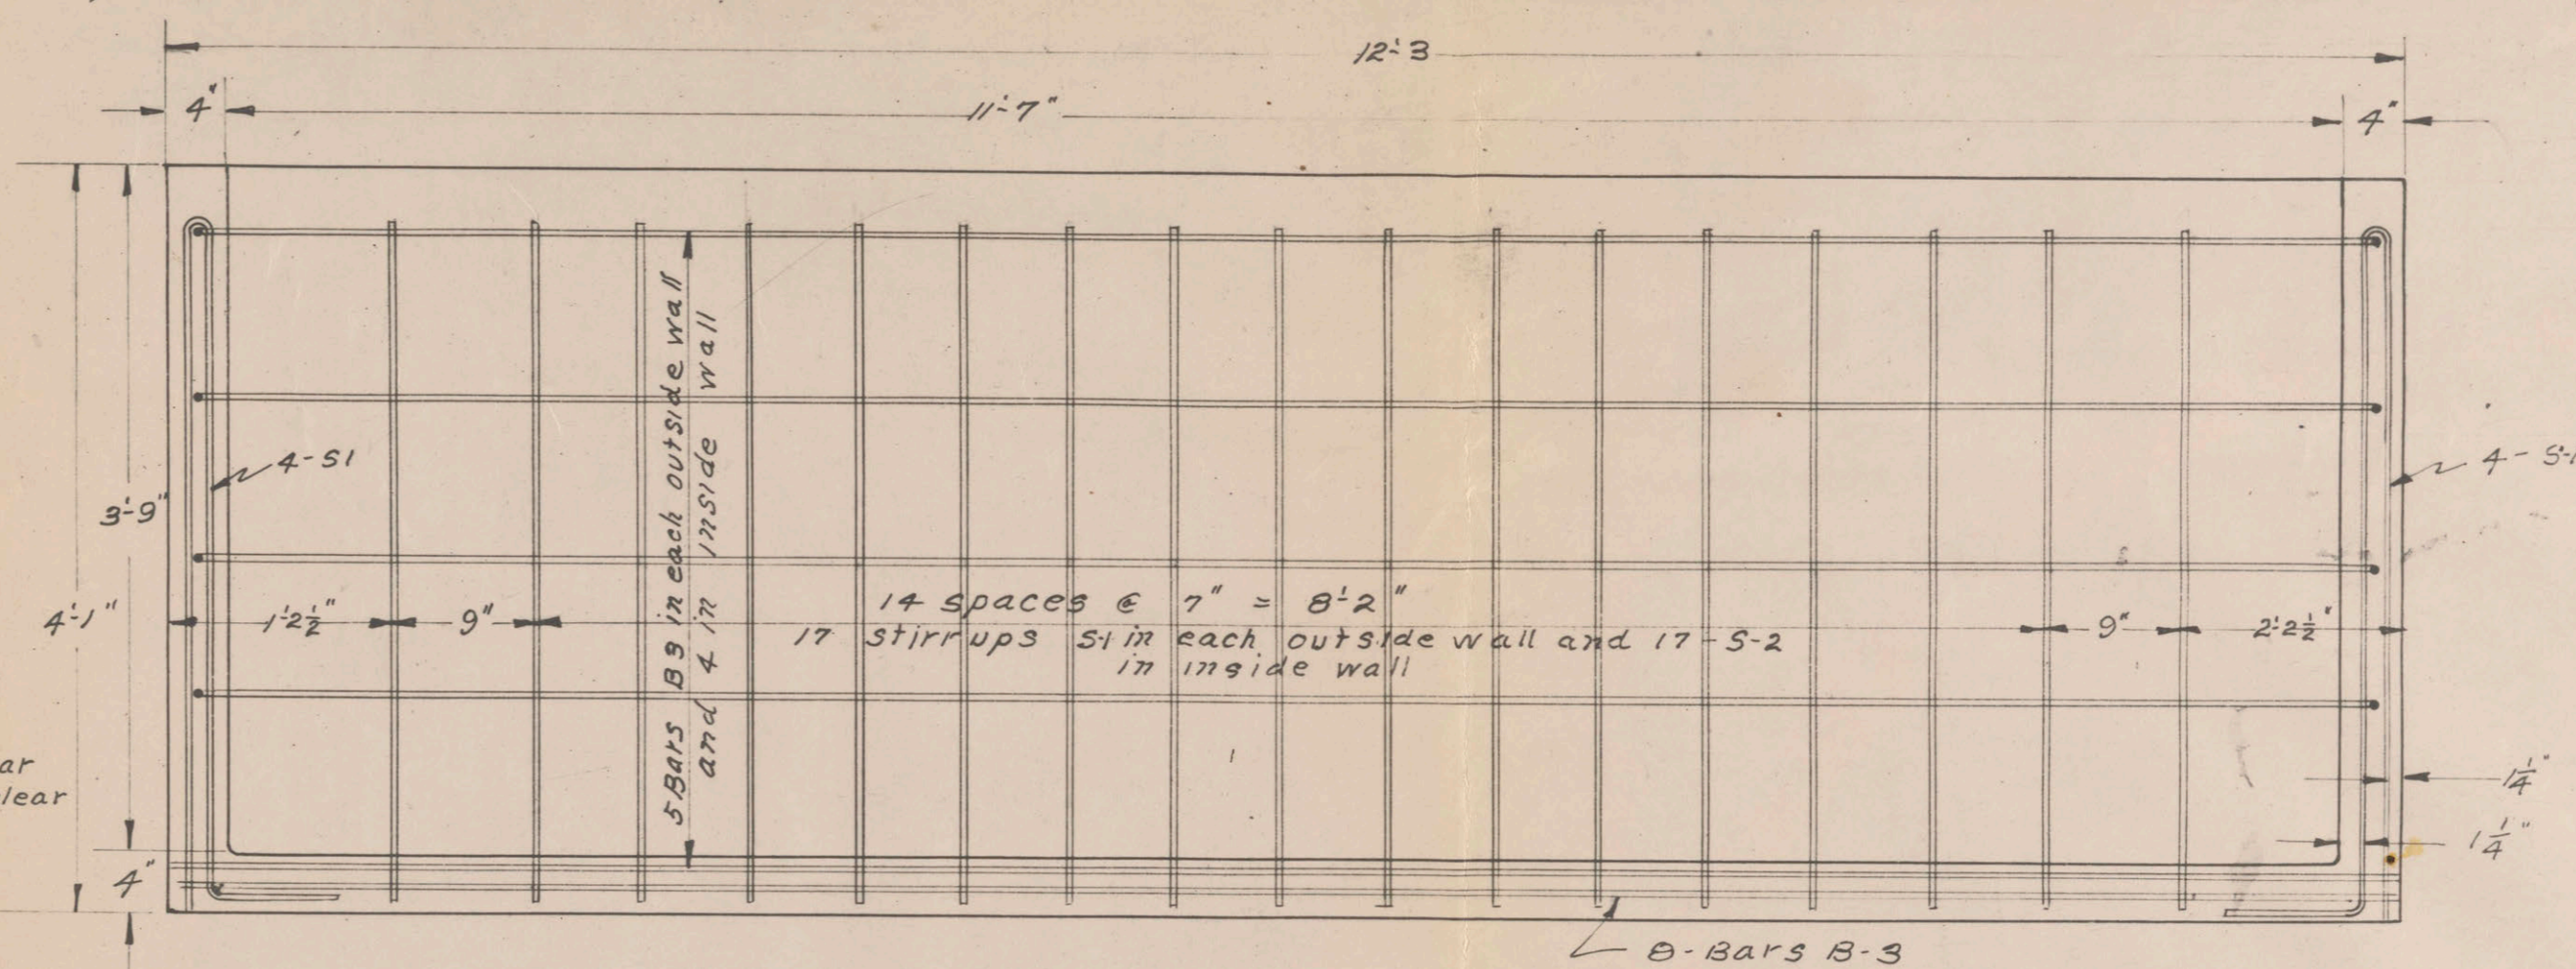 12'-3
4"
11'-7"
4"
4-S1
4- S-1
3'-9"
4'-1"
1'2½"
9"
5 Bars B3 in each outside wall
and 4 in inside wall
14 spaces @ 7" = 8'-2"
17 stirrups S-1 in each outside wall and 17-S-2
in inside wall
9"
2'-2½"
ar
lear
1¼"
1¼"
4"
8-Bars B-3